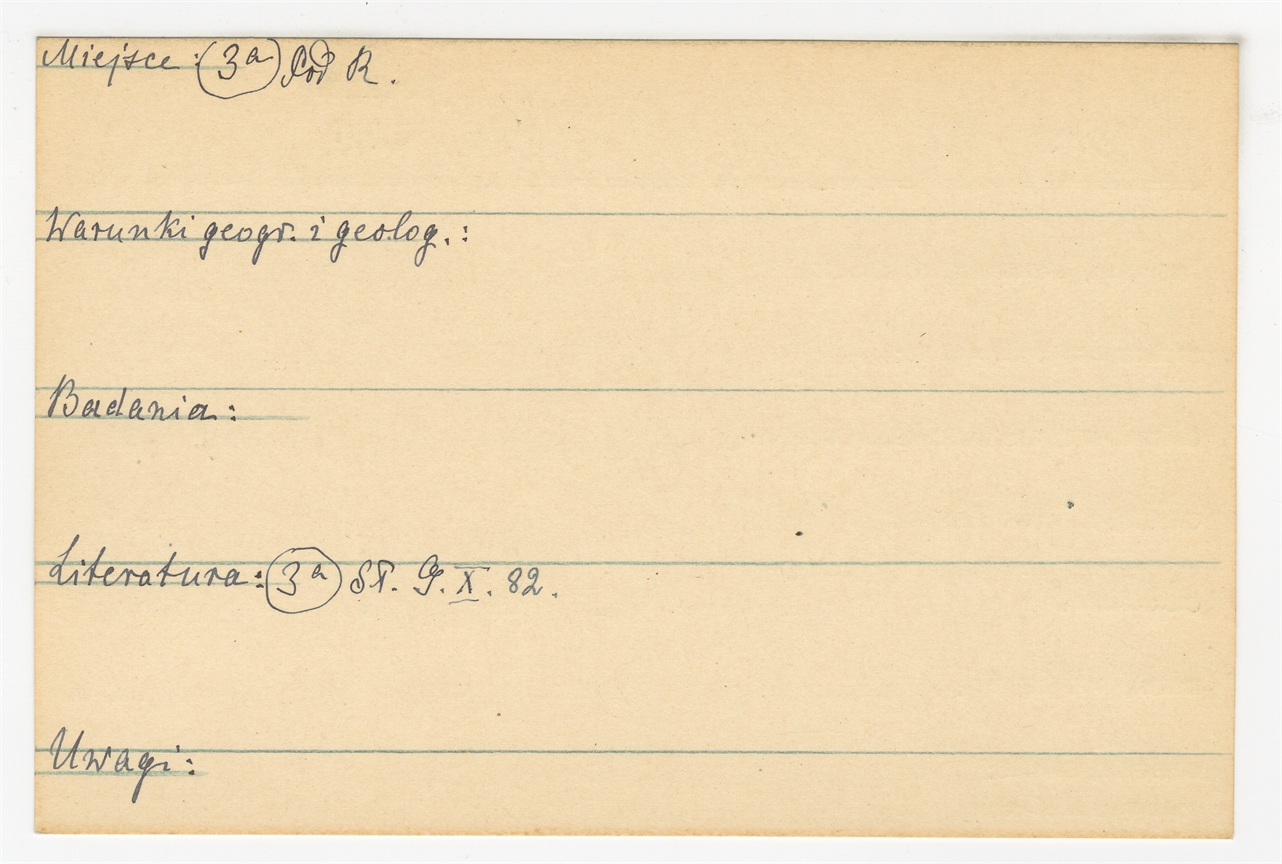 Miejsce: 3a Pod R.
Warunki geogr. i geolog.:
Badania:
Literatura: 3a ST. G. X. 82.
Uwagi: